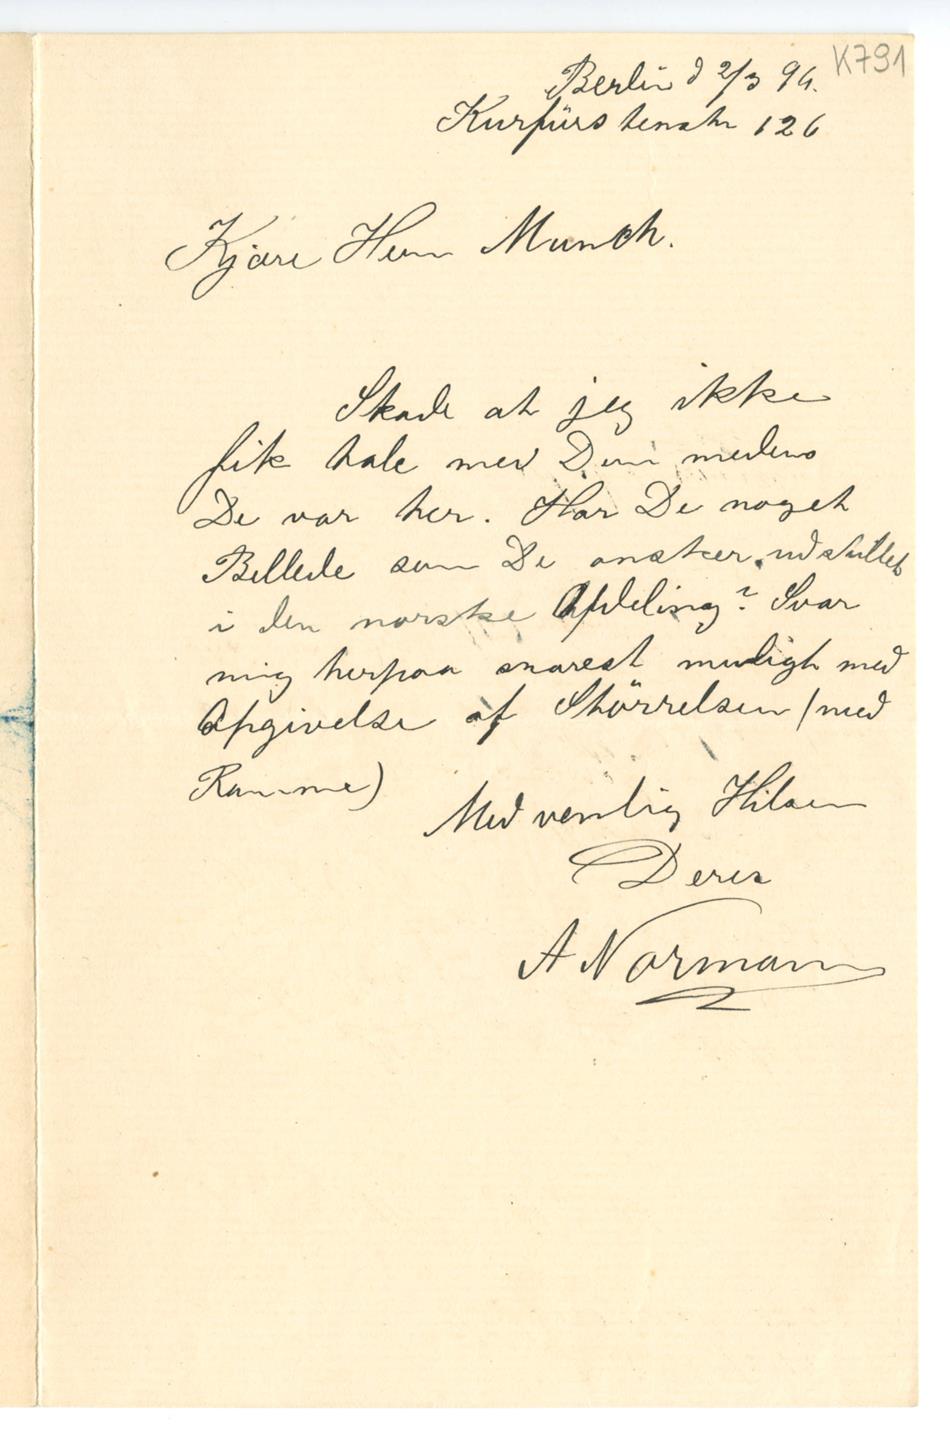 K791
Berlin d 2/3 96.
Kurfürstenstr 126
Kjære Herr Munch.
Skade at jeg ikke
fik tale med Dem medens
De var her. Har De noget
Billede som De ønsker udstillet
i den norske Afdeling? Svar
mig herpaa snarest muligt med
Opgivelse af Störrelsen (med
Ramme)
Med venlig Hilsen
Deres
A Normann